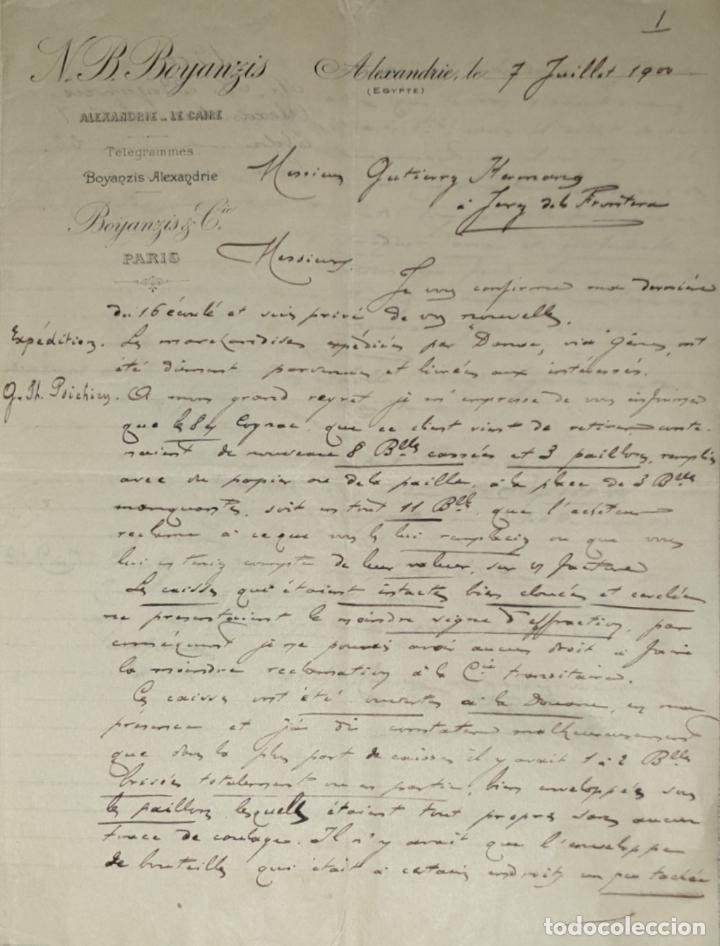 1
N. B. Boyanzis
Alexandrie, le 7 Juillet 1900
(EGYPTE)
ALEXANDRIE _ LE CAIRE
Télégrammes
Boyanzis-Alexandrie
Boyanzis & Cie
PARIS
Messieurs
à Jerez de la Frontera
Messieurs,
Je vous confirme ma dernière
du 16 écoulé et suis privé de vos nouvelles.
Expédition. Les marchandises expédiées par "Douro, via Gênes, ont
été dûment parvenues et livrées aux intéressés.
G. Th. Psichieu. A mon grand regret je m'empresse de vous informer
que les Cognac, que ce client vient de retirer conte-
naient de nouveau 8 Blles cassées et 3 paillons, remplis
avec du papier ou de la paille, à la place de 3 Blles
manquantes, soit en tout 11 Blles que l'acheteur
réclame à ce que vous les lui remplaciez ou que vous
lui teniez compte de leur valeur, sur facture
Les caisses qui étaient intactes bien clouées et cerclées
ne présentaient le moindre signe d'effraction, par
conséquent je ne pouvais avoir aucun droit à faire
la moindre réclamation à la Cie transitaire.
Ces caisses ont été ouvertes à la Douane, en ma
présence et j'ai dû constater malheureusement
que dans la plus part de caisses il y avait 1 à 2 Blles
brisées totalement ou en partie, bien enveloppées sous
les paillons lesquelles étaient tout propres sans aucune
trace de coulage. Il n'y avait que l'enveloppe
de bouteilles qui était à certains endroits un peu tachée
todocoleccion.net